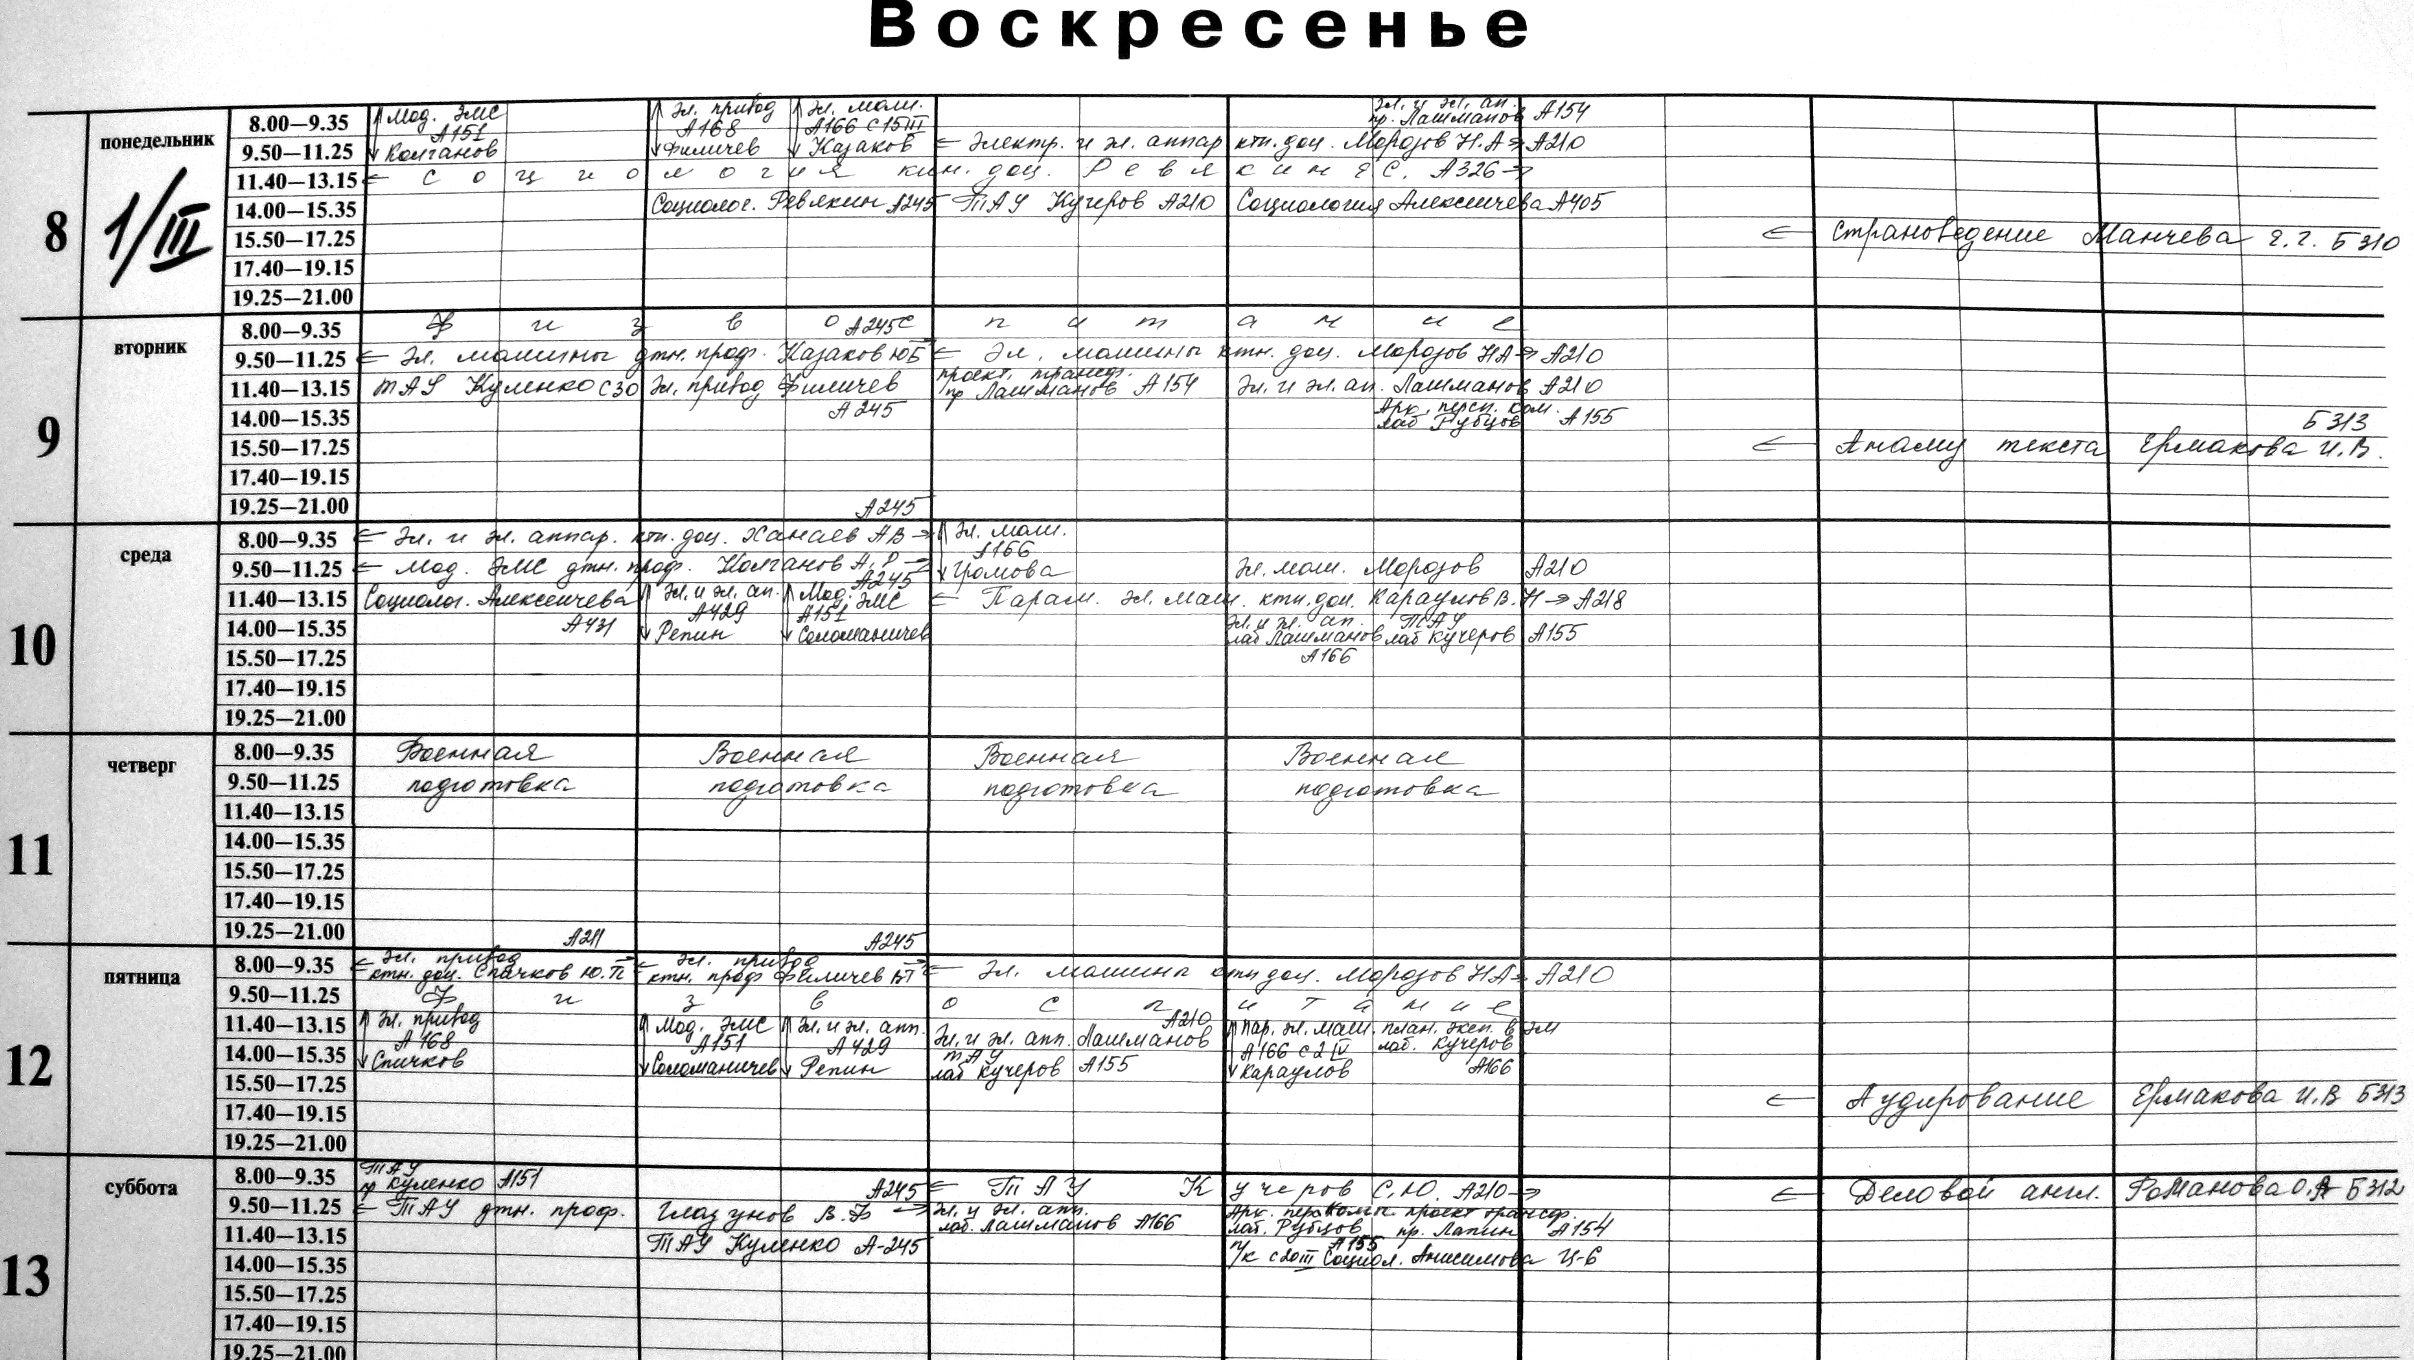 Воскресенье
понедельник
8
1/III
8.00—9.35 Мод. ЭМС Эл. привод Эл. маш. Эл. и эл. ап.
А151 А168 А166 С15III пр. Лашманов А154
9.50—11.25 Колганов Филичев Казаков ← Электр. и эл. аппар ктн. доц. Морозов Н.А → А210
11.40—13.15 ← Социология кин. доц. Ревякин Е С. А326 →
14.00—15.35 Социолог. Ревякин А245 ТАУ Кучеров А210 Социология Алексеичева А405
15.50—17.25 ← Страноведение Манчева Е.Г. Б310
17.40—19.15
19.25—21.00
вторник
9
8.00—9.35 Физвоспитание
А245С
9.50—11.25 ← Эл. машины дтн. проф. Казаков ЮБ ← Эл. машины ктн. доц. Морозов НА → А210
11.40—13.15 ТАУ Куленко С30 Эл. привод Филичев проект. трансф. Эл. и эл. ап. Лашманов А210
пр Лашманов А154
А245
14.00—15.35 Арк. персп. ком.
лаб Рубцов А155
Б313
15.50—17.25 ← Анализ текста Ермакова И.В.
17.40—19.15
19.25—21.00
А245
среда
10
8.00—9.35 ← Эл. и эл. аппар. ктн. доц. Ханаев АВ → Эл. маш.
А166
9.50—11.25 ← Мод. ЭМС дтн. проф. Колганов А.Р → Громова Эл. маш. Морозов А210
А245
11.40—13.15 Социолог. Алексеичева Эл. и эл. ап. Мод. ЭМС ← Парам. эл. маш. ктн. доц. Караулов В.Н → А218
А431 А429 А151
14.00—15.35 Репин Соломаничев Эл. и эл. ап. ТАУ
лаб Лашманов лаб Кучеров А155
А166
15.50—17.25
17.40—19.15
19.25—21.00
четверг
11
8.00—9.35 Военная Военная Военная Военная
9.50—11.25 подготовка подготовка подготовка подготовка
11.40—13.15
14.00—15.35
15.50—17.25
17.40—19.15
19.25—21.00
А211 А245
пятница
12
8.00—9.35 ← Эл. привод → ← Эл. привод →
ктн. доц. Спичков Ю.П ктн. проф Филичев ВТ ← Эл. машины ктн доц. Морозов НА → А210
9.50—11.25 Физвоспитание
А210
11.40—13.15 Эл. привод Мод. ЭМС Эл. и эл. апп. Эл. и эл. апп. Лашманов Пар. эл. маш. план. эксп. в ЭМ
А168 А151 А429 ТАУ А166 с 2 IV лаб. Кучеров
14.00—15.35 Спичков Соломаничев Репин лаб Кучеров А155 Караулов А166
15.50—17.25 ← Аудирование Ермакова И.В Б313
17.40—19.15
19.25—21.00
суббота
13
8.00—9.35 ТАУ
пр Куленко А151 А245 ← ТАУ Кучеров С.Ю. А210 → ← Деловой англ. Романова О.А Б312
9.50—11.25 ← ТАУ дтн. проф. Глазунов В.Ф → Эл. и эл. апп. Арк. персп комп. проект трансф.
лаб. Лашманов А166 лаб. Рубцов пр. Лапин А154
11.40—13.15 ТАУ Куленко А-245 А155
п/к с 20 III Социол. Анисимова Ц-6
14.00—15.35
15.50—17.25
17.40—19.15
19.25—21.00